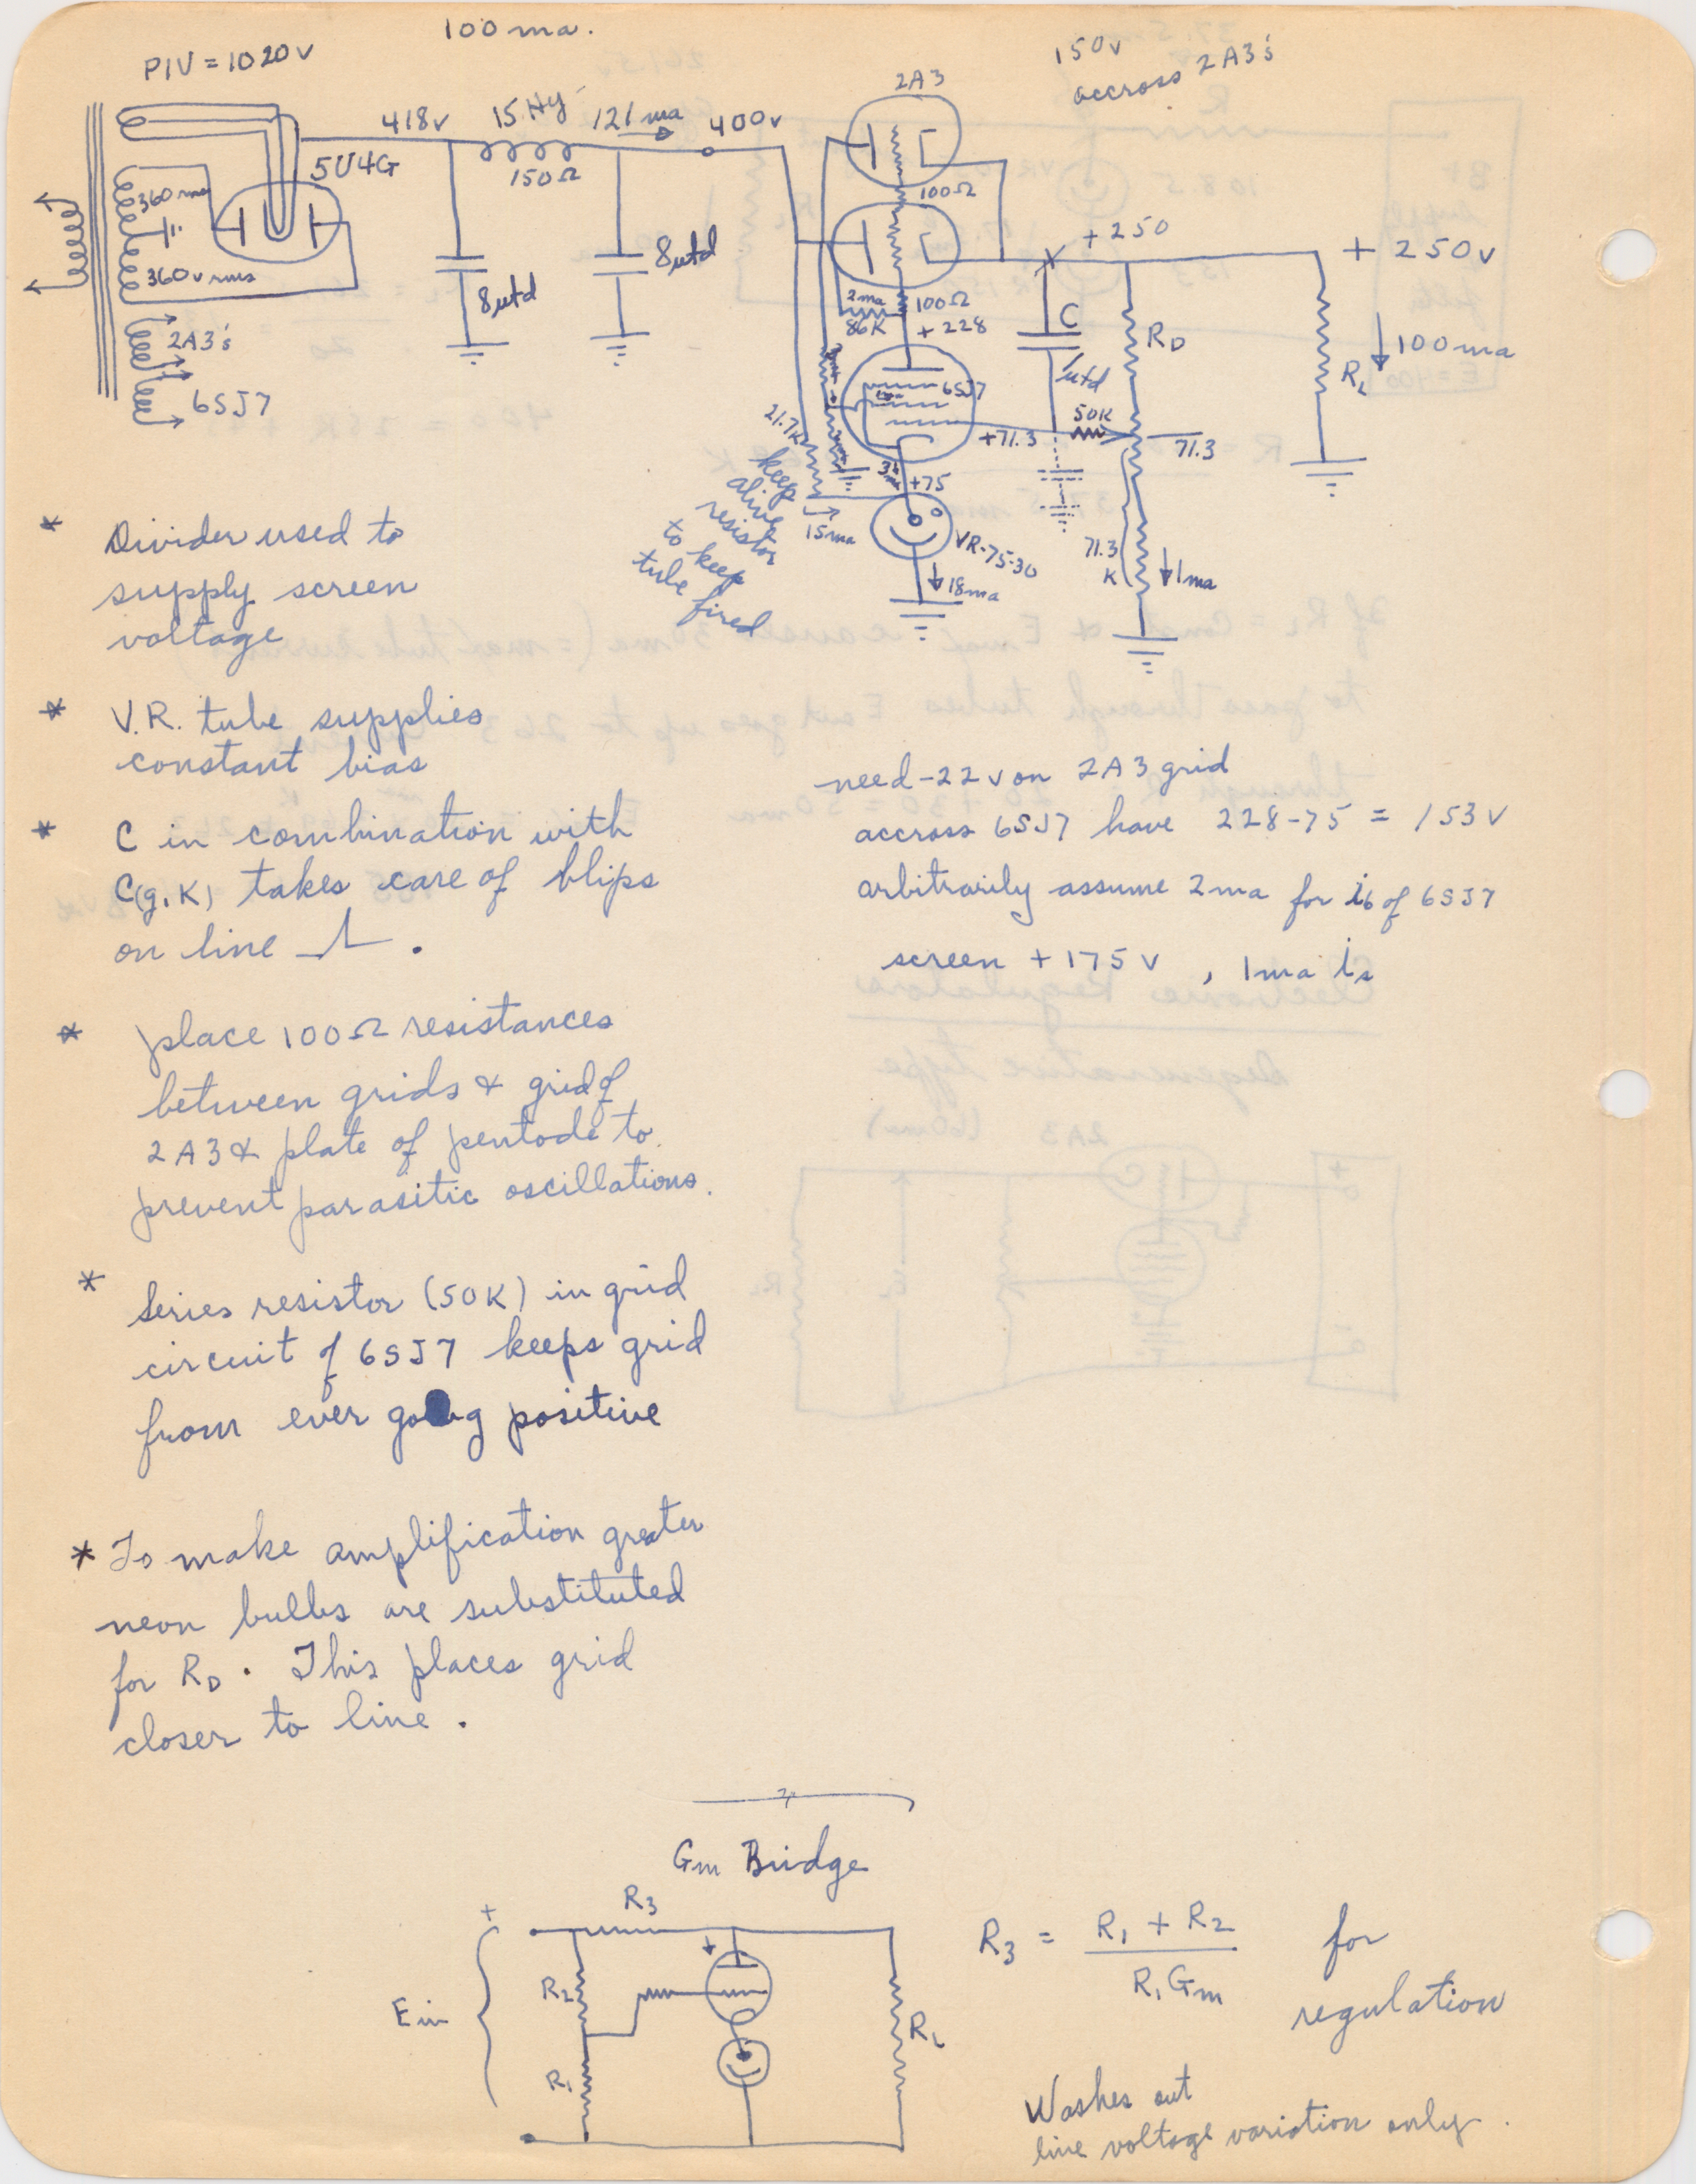 100 ma.
PIV = 1020v
150v
accross 2A3's
2A3
418v
15 Hy
121 ma
400v
5U4G
150Ω
360 rms
360v rms
8 μfd
8 μfd
2A3's
6SJ7
100Ω
+ 250
+ 250v
2ma
86K
100Ω
+ 228
C
1 μfd
RD
RL
100 ma
6SJ7
21.7K
+71.3
50K
71.3
3 ma
+75
keep
alive
resistor
to keep
tube fired
15 ma
VR-75-30
18ma
71.3
K
1ma
* Divider used to
supply screen
voltage
* V.R. tube supplies
constant bias
* C in combination with
C(g.K) takes care of blips
on line .
* place 100Ω resistances
between grids & grid of
2A3 & plate of pentode to
prevent parasitic oscillations.
* Series resistor (50K) in grid
circuit of 6SJ7 keeps grid
from ever going positive
* To make amplification greater
neon bulbs are substituted
for RD. This places grid
closer to line.
need -22 v on 2A3 grid
accross 6SJ7 have 228-75 = 153 v
arbitrarily assume 2 ma for ib of 6SJ7
screen + 175 v , 1 ma is
Gm Bridge
R3
+
R2
Ein
R1
RL
R3 = R1 + R2 / R1 Gm for
regulation
Washes out
line voltage variation only.